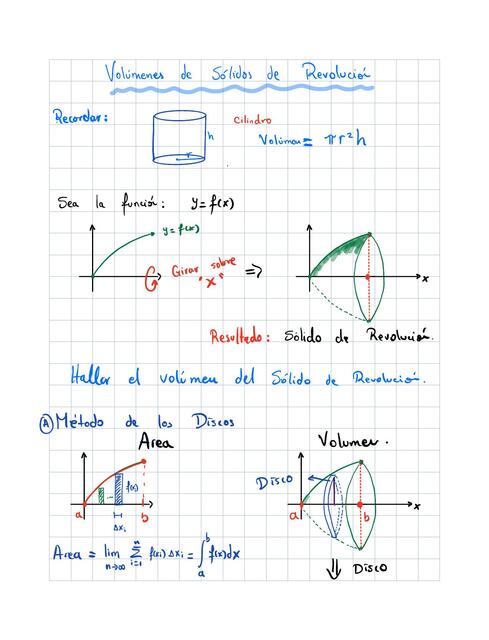 Volúmenes de Sólidos de Revolución
Recordar:
Cilindro
h
r
Volúmen = πr²h
Sea la función: y=f(x)
y=f(x)
Girar sobre "x"
⇒
x
Resultado: Sólido de Revolución.
Hallar el volúmen del Sólido de Revolución.
(A) Método de los Discos
Area
Volumen.
f(x)
a
b
Δxᵢ
Disco
a
b
x
Area = lim n→∞ Σ i=1 n f(xᵢ) Δxᵢ = ∫ₐᵇ f(x)dx
⇓ Disco